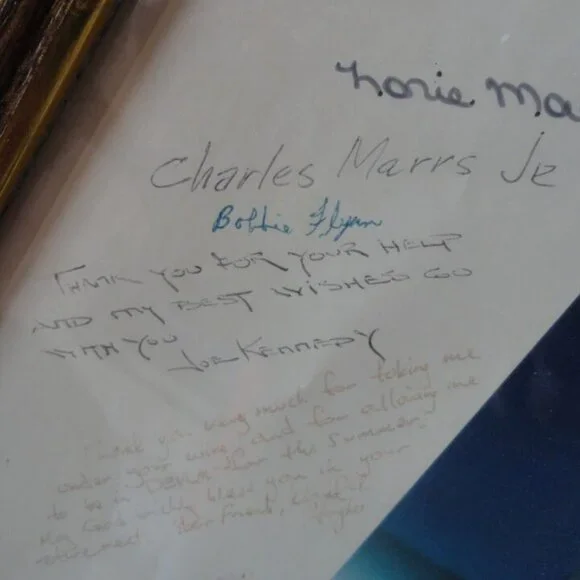 Lorie Ma
Charles Marrs Jr
Bobbie Flynn
THANK YOU FOR YOUR HELP
AND MY BEST WISHES GO
WITH YOU JOE KENNEDY
Thank you very much for taking me
under your wing and for allowing me
to be in for the summer.
May God richly bless you in your
retirement Your friend,